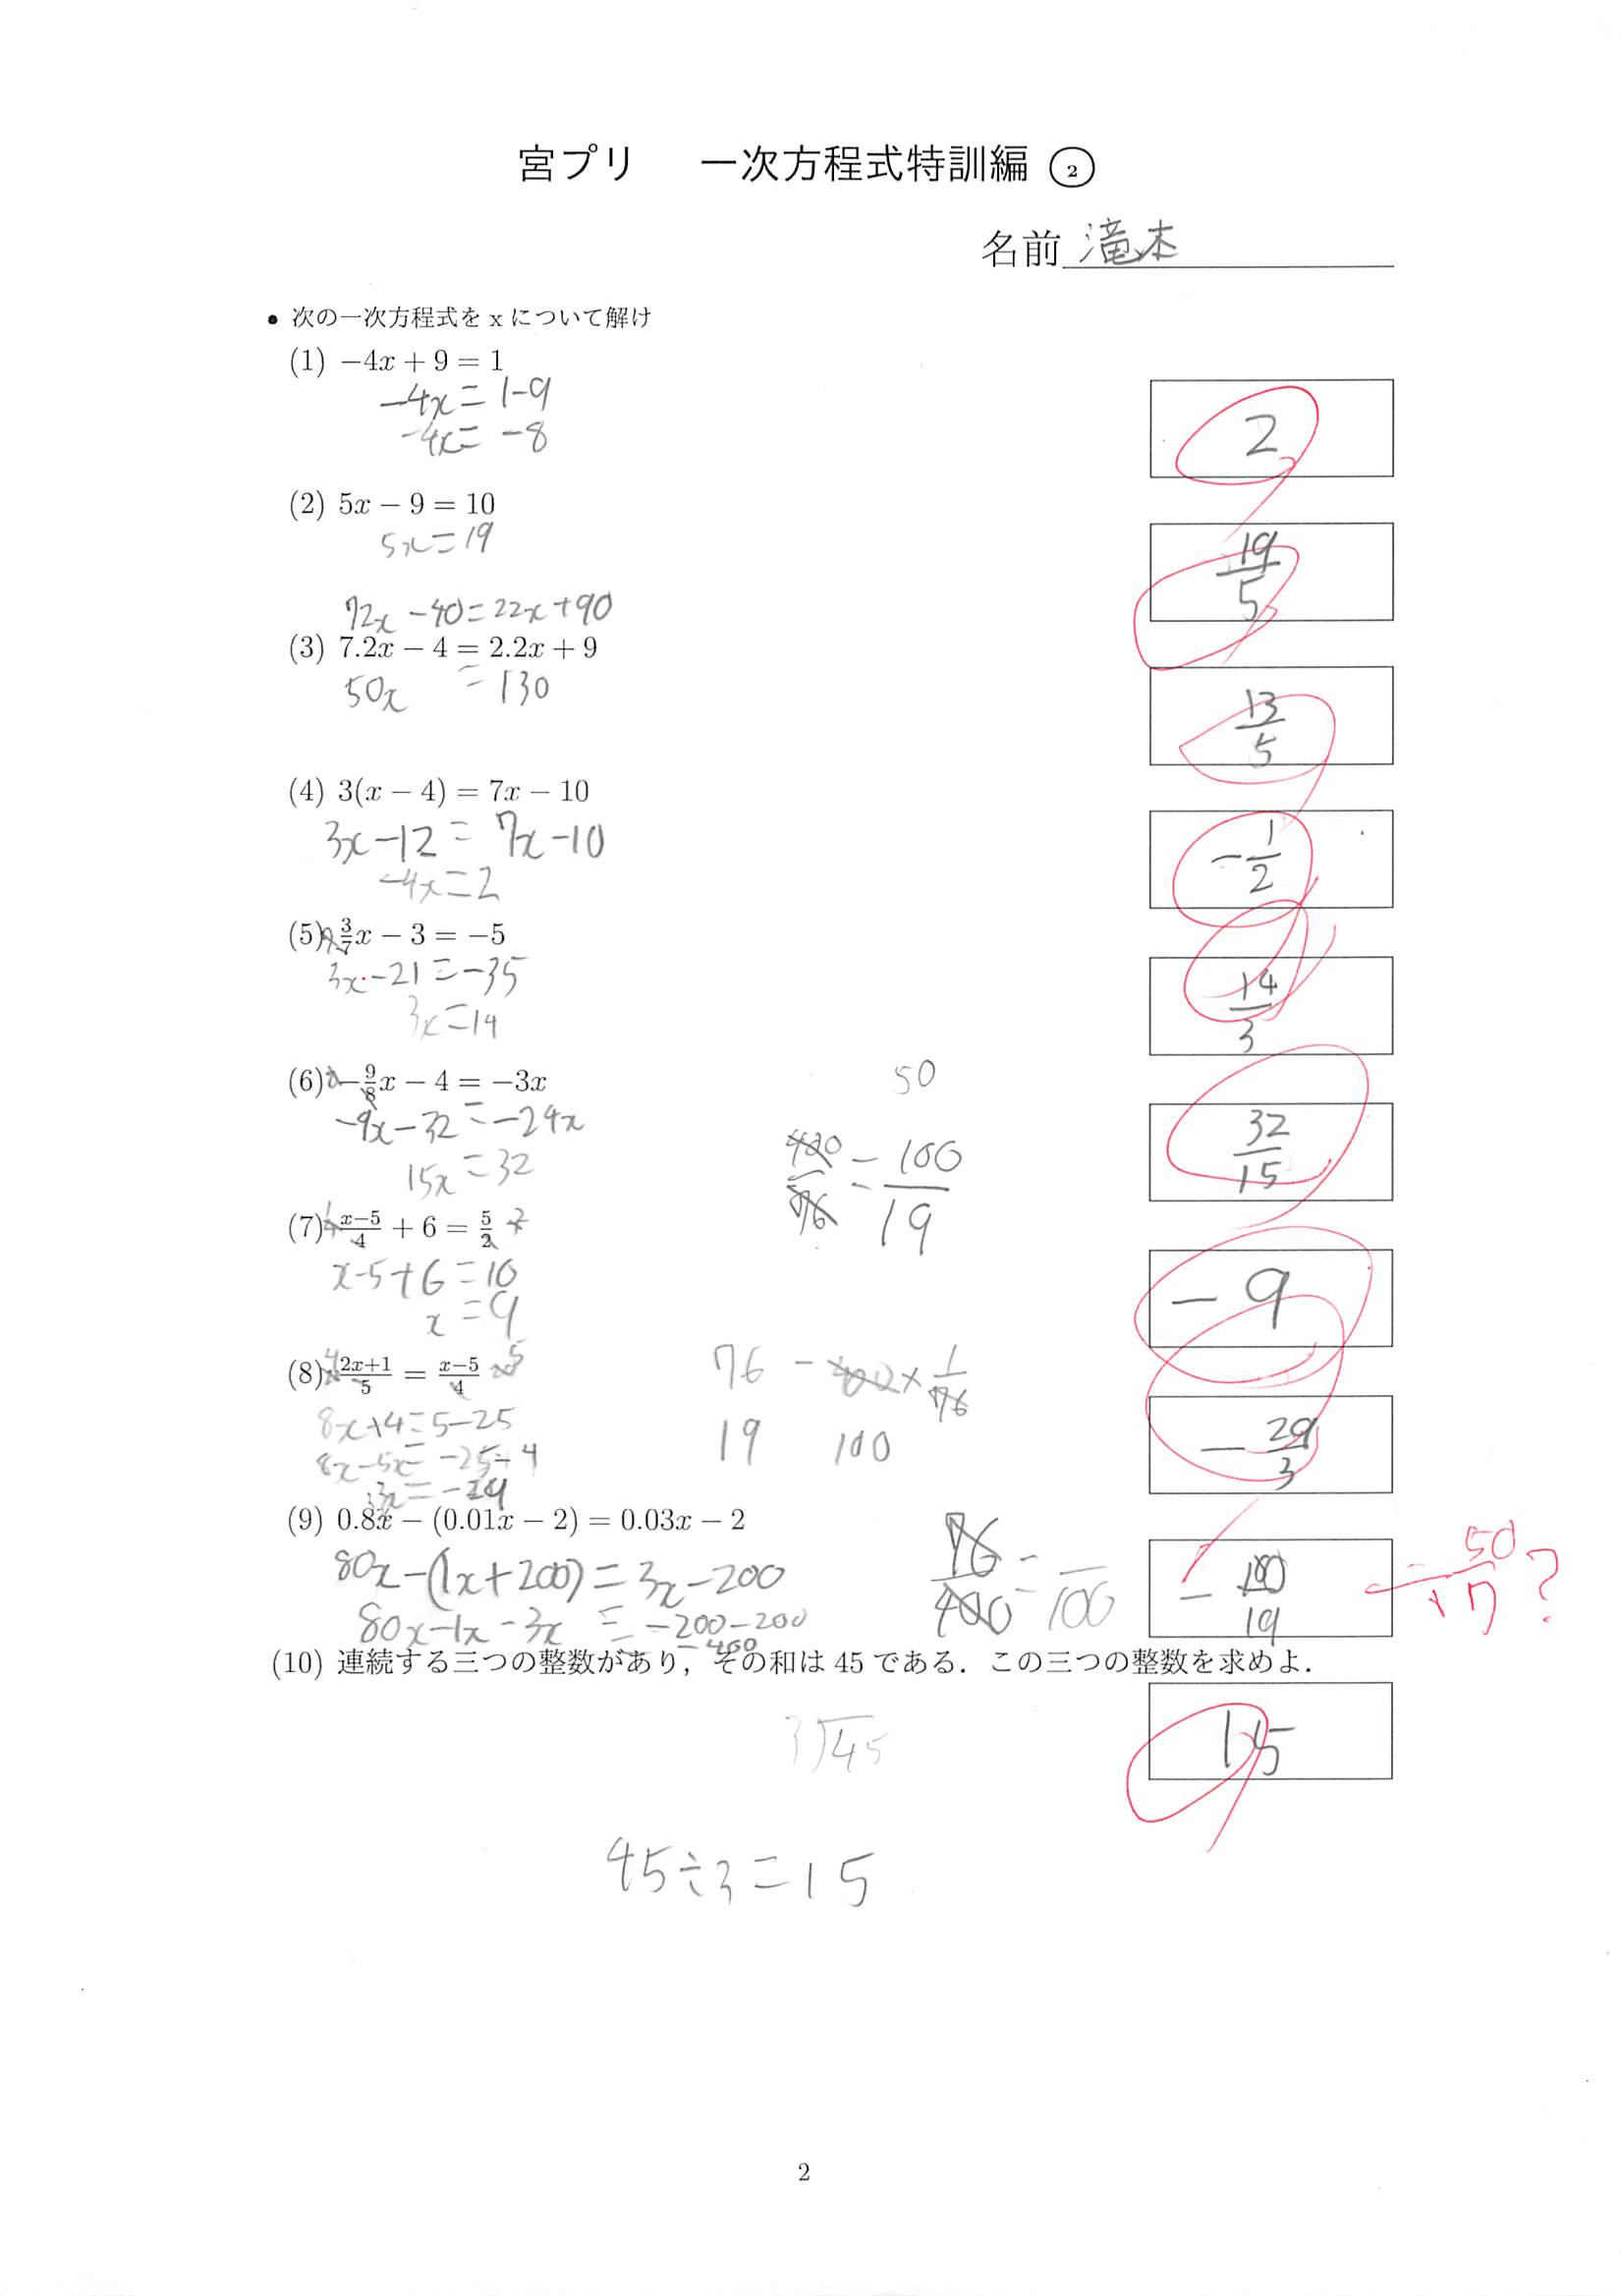 宮プリ 一次方程式特訓編 ②
名前 滝本
• 次の一次方程式を x について解け
(1) −4x + 9 = 1
−4x = 1−9
−4x = −8
2
(2) 5x − 9 = 10
5x = 19
19/5
72x − 40 = 22x + 90
(3) 7.2x − 4 = 2.2x + 9
50x = 130
13/5
(4) 3(x − 4) = 7x − 10
3x − 12 = 7x − 10
−4x = 2
−1/2
(5) 3/7x − 3 = −5
3x − 21 = −35
3x = 14
14/3
(6) −9/8x − 4 = −3x
−9x − 32 = −24x
15x = 32
32/15
50
400/76 = 100/19
(7) x−5/4 + 6 = 5/2
x−5+6 = 10
x = 9
− 9
(8) 2x+1/5 = x−5/4
8x+4 = 5−25
8x−5x = −25−4
3x = −29
− 29/3
76 − 400 × 1/76
19 100
(9) 0.8x − (0.01x − 2) = 0.03x − 2
80x − (1x + 200) = 3x − 200
80x − 1x − 3x = −200 − 200
−400
76/400 = /100
− 100/19
− 50/17 ?
(10) 連続する三つの整数があり，その和は 45 である．この三つの整数を求めよ．
3)45
15
45÷3＝15
2